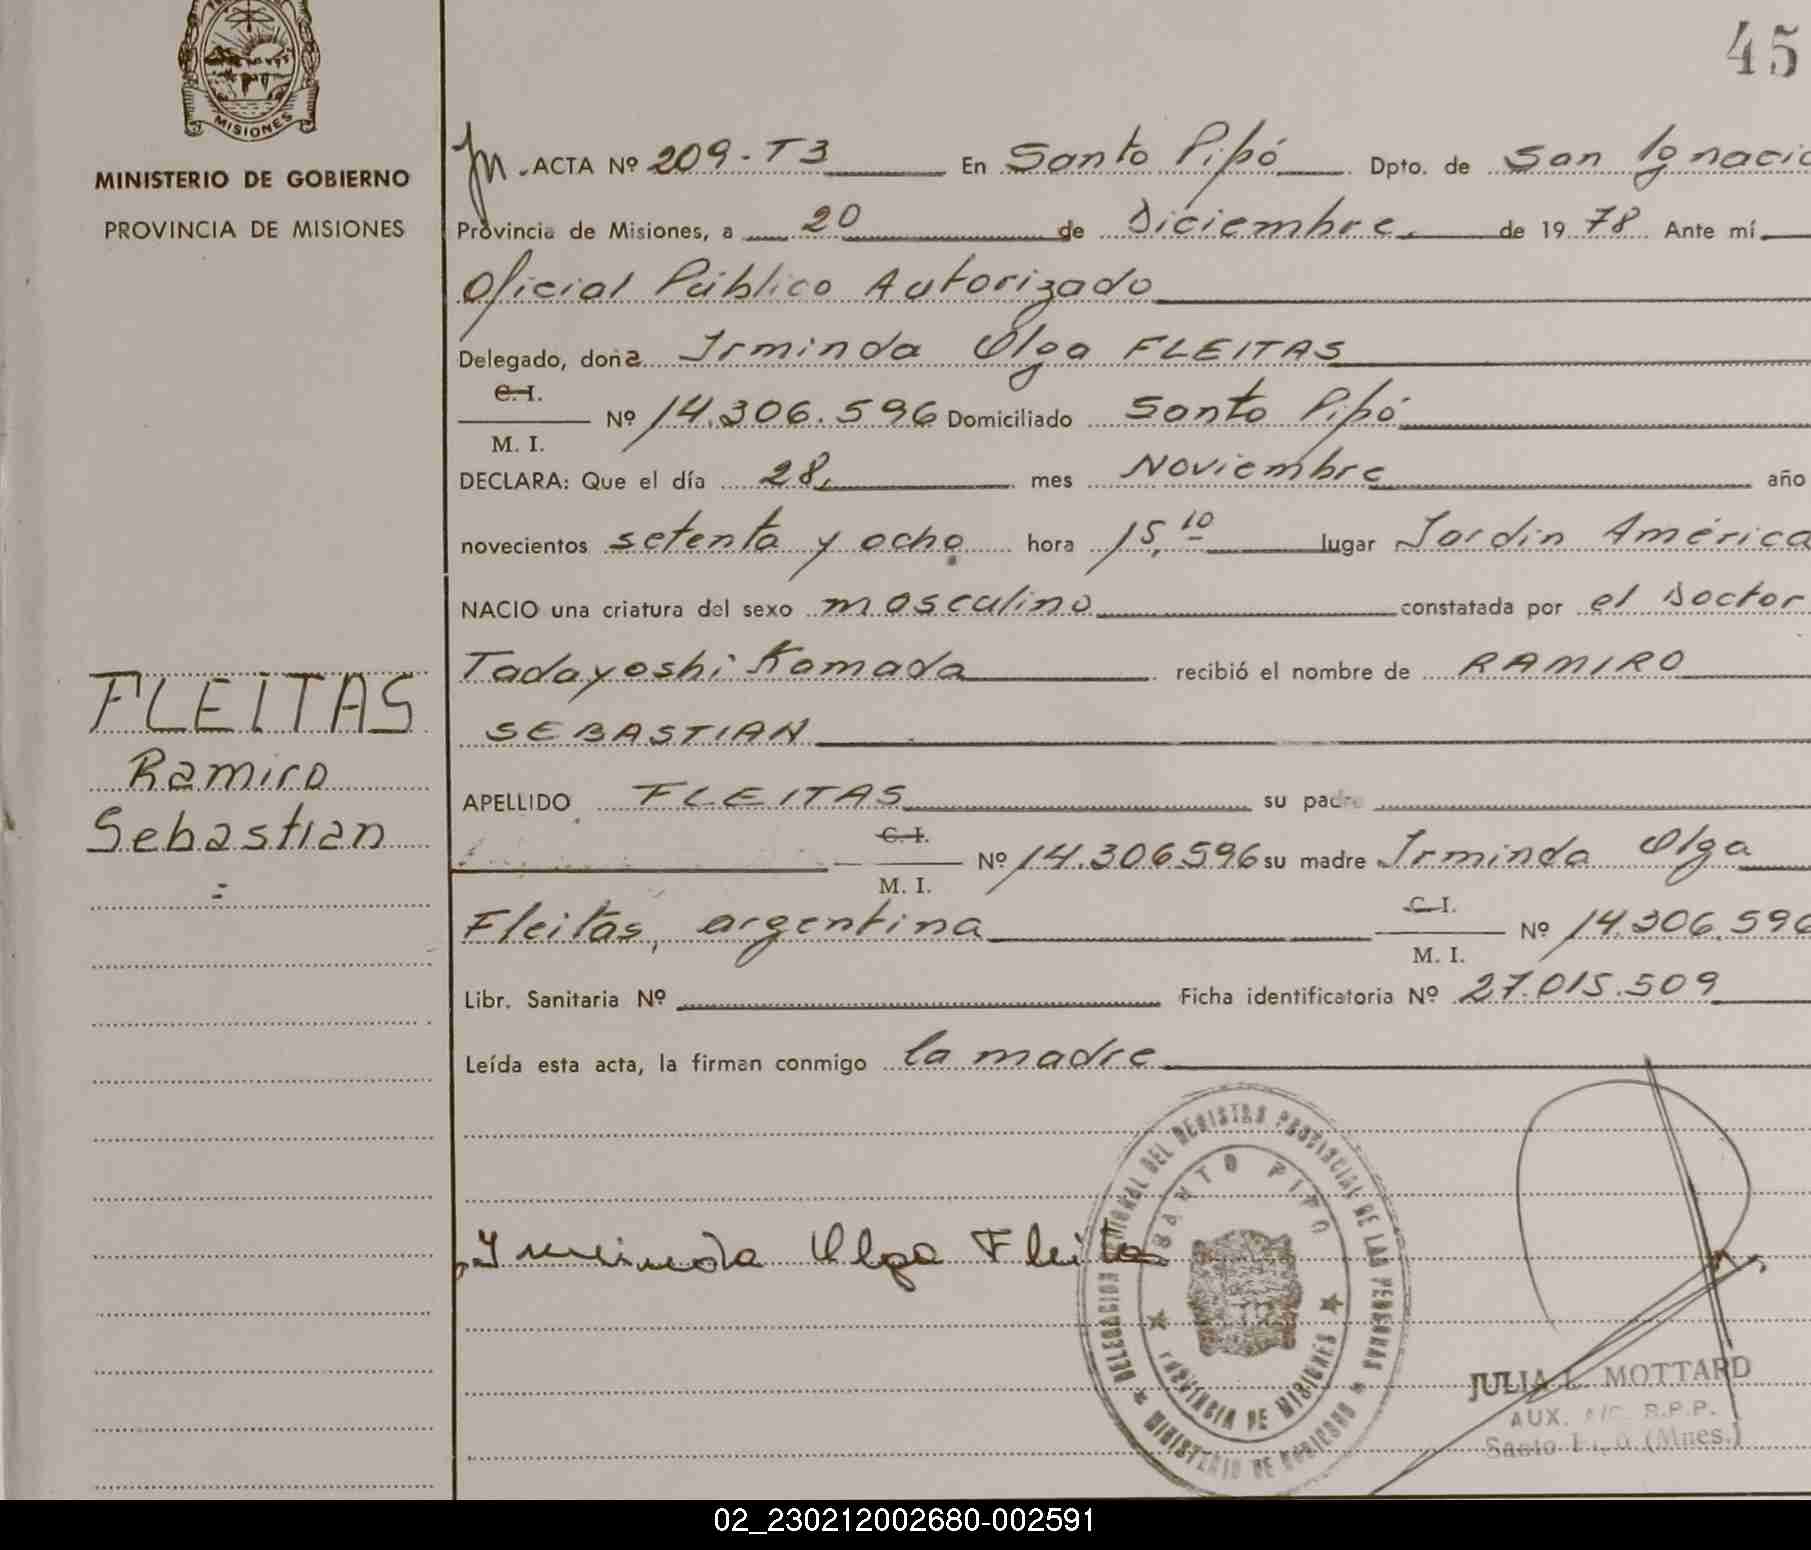 45
MISIONES
MINISTERIO DE GOBIERNO
PROVINCIA DE MISIONES
FLEITAS
Ramiro
Sebastian
ACTA Nº 209-T3 En Santo Pipó Dpto. de San Ignacio
Provincia de Misiones, a 20 de Diciembre. de 1978 Ante mí
Oficial Público Autorizado
Delegado, doña Irminda Olga FLEITAS
C. I.
M. I. Nº 14.306.596 Domiciliado Santo Pipó
DECLARA: Que el día 28, mes Noviembre año
novecientos setenta y ocho hora 15,10 lugar Jardin América
NACIO una criatura del sexo masculino constatada por el Doctor
Tadayoshi Kamada recibió el nombre de RAMIRO
SEBASTIAN
APELLIDO FLEITAS su padre
C. I.
M. I. Nº 14.306.596 su madre Irminda Olga
Fleitas, argentina C. I.
M. I. Nº 14.306.596
Libr. Sanitaria Nº Ficha identificatoria Nº 27.015.509
Leída esta acta, la firman conmigo la madre
Irminda Olga Fleitas
DELEGACION DEL REGISTRO PROVINCIAL DE LAS PERSONAS
SANTO PIPO
PROVINCIA DE MISIONES
MINISTERIO DE GOBIERNO
JULIA L. MOTTARD
AUX. A/C. R.P.P.
Santo Pipó (Mnes.)
02_230212002680-002591